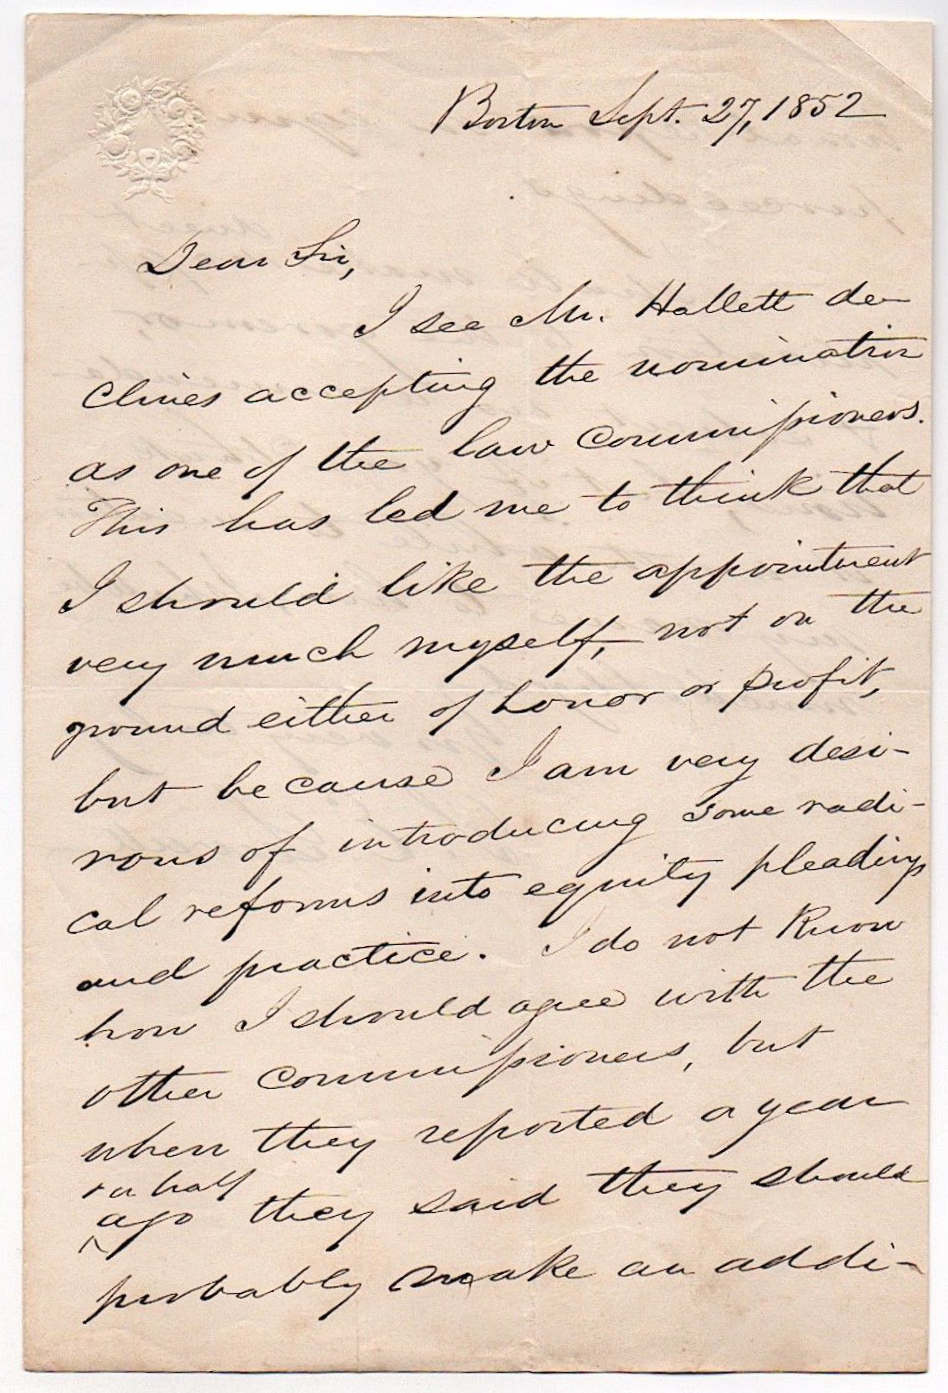 Boston Sept. 27, 1852
Dear Sir,
I see Mr. Hallett de-
clines accepting the nomination
as one of the law commissioners.
This has led me to think that
I should like the appointment
very much myself, not on the
ground either of honor or profit,
but because I am very desi-
rous of introducing some radi-
cal reforms into equity pleadings
and practice. I do not know
how I should agree with the
other commissioners, but
when they reported a year
+ a half
ago they said they should
probably make an addi-